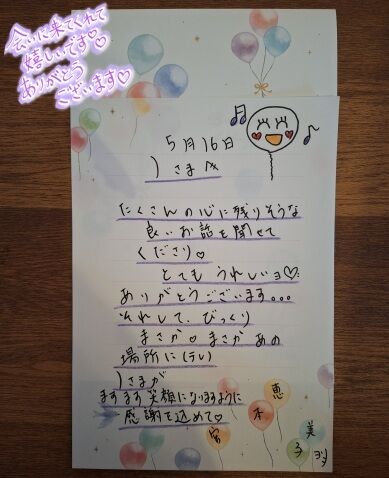 会いに来てくれて
嬉しいです♡
ありがとう
ございます♡
5月16日
Jさまへ
たくさんの心に残りそうな
良いお話を聞せて
くださり♡
とてもうれしいョ♡
ありがとうございます。。。
それして、びっくり
まさか♡まさかあの
場所に(テレ)
Jさまが
ますます笑顔になりますように
感謝を込めて♡
宮本恵美